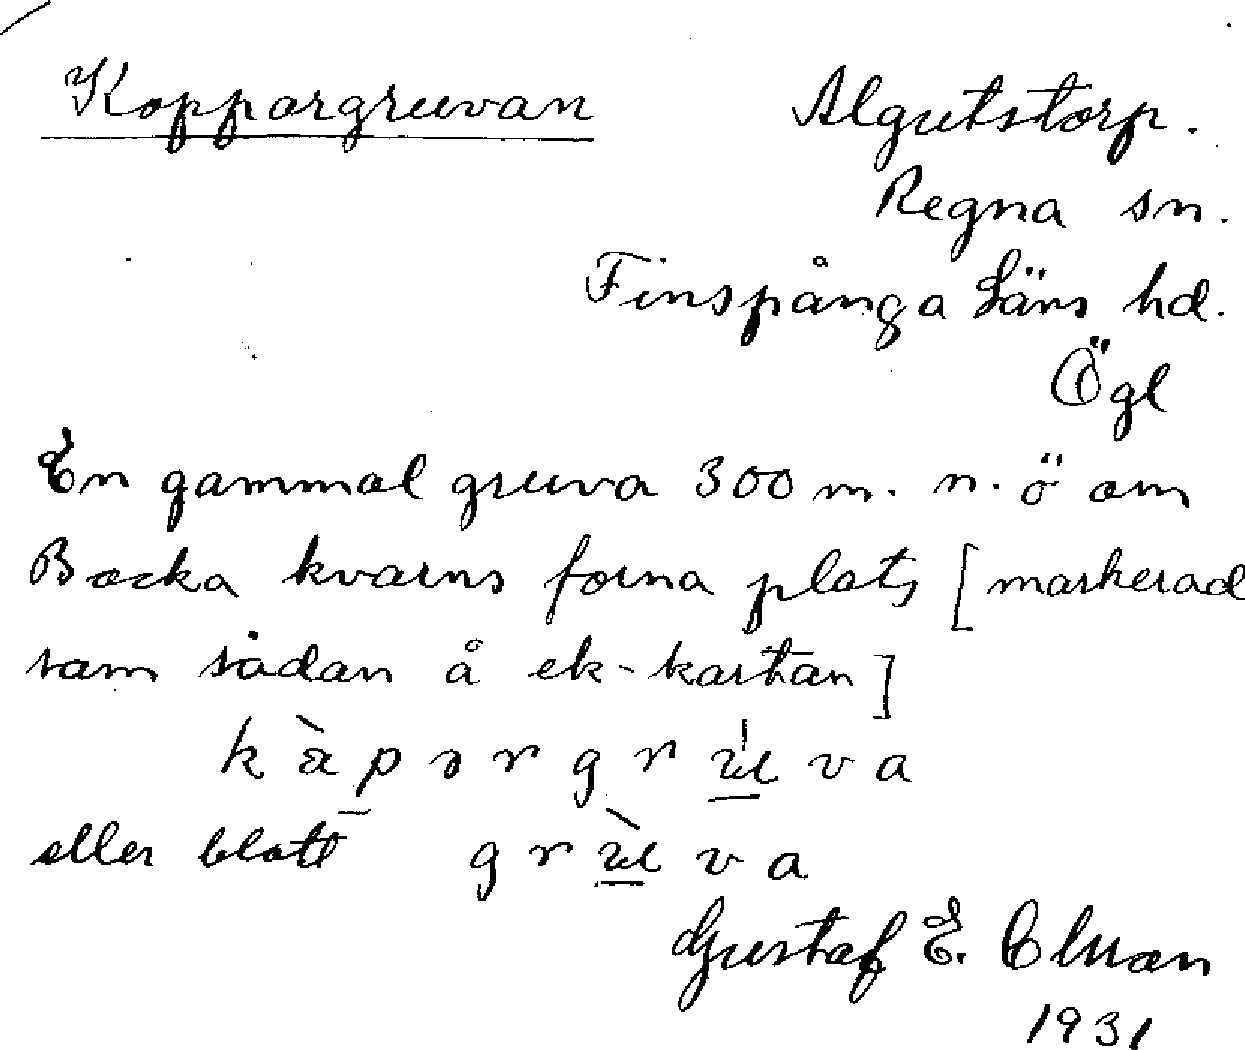 Koppargruvan
Algutstorp.
Regna sn.
Finspånga Läns hd.
Ögl
En gammal gruva 300 m. n. ö om
Backa kvarns forna plats [markerad
som sådan å ek-kartan]
eller blott
Gustaf E.
1931